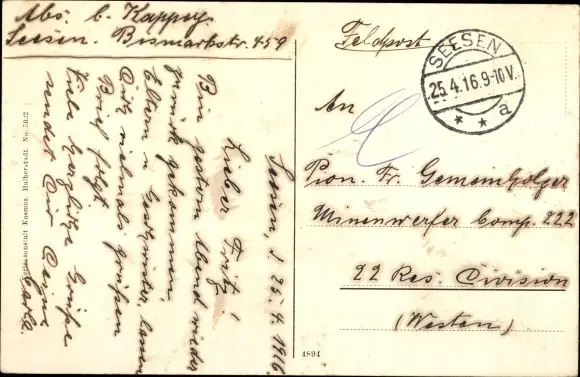 Abs. C. Kappey.
Seesen. Bismarkstr. 459
Feldpost
SEESEN
25.4.16.9-10V.
* * a
An
Pion. Fr. Gemeinholzer
Minenwerfer Comp. 222
22 Res. Division
(Westen)
Seesen, d 25.4.1916.
Lieber Fritz!
Bin gestern Abend wieder
zurück gekommen.
Eltern u Geschwister lassen
Dich vielmals grüßen
Brief folgt.
Viele herzliche Grüße
sendet Dir Deine
Kosmos, Halberstadt. No. 50/2
4894